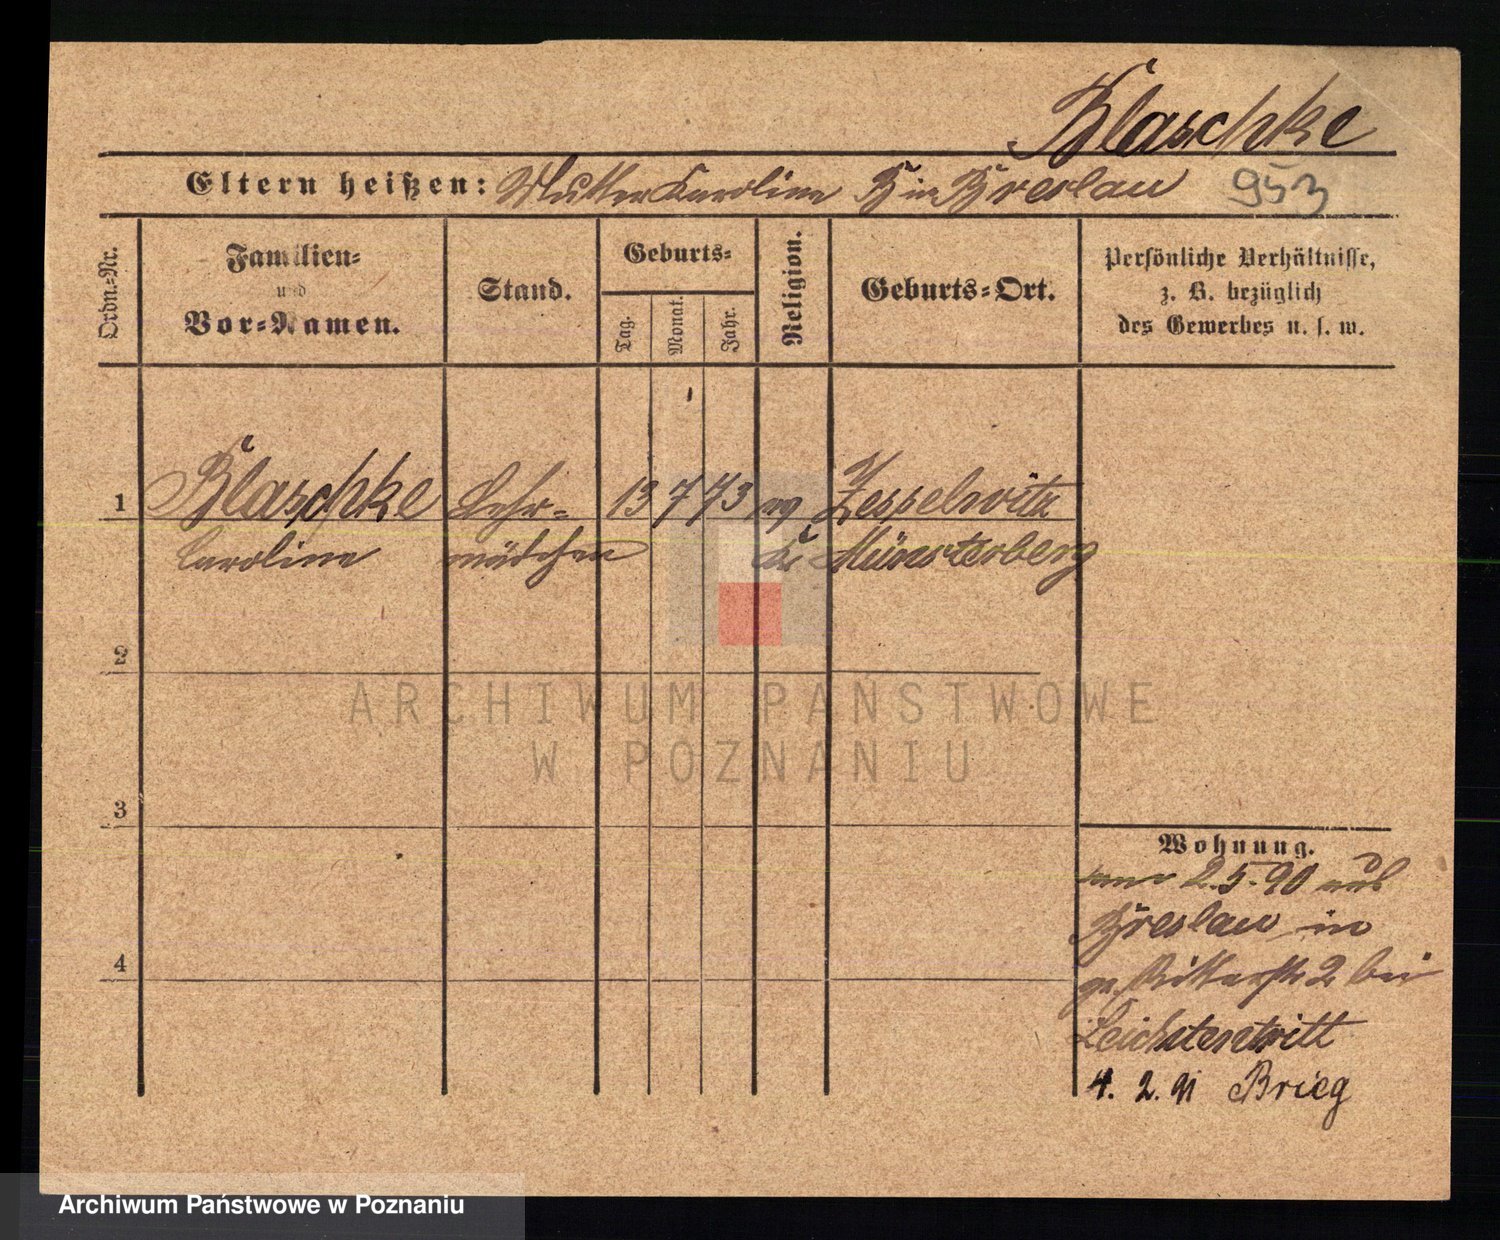 Blaschke
Eltern heißen: Mutter Karoline B in Breslau 953
Ordn.-Nr.
Familien-
und
Vor-Namen.
Stand.
Geburts-
Tag.
Monat.
Jahr.
Religion.
Geburts-Ort.
Persönliche Verhältnisse,
z. B. bezüglich
des Gewerbes u. s. w.
1 Blaschke Lehr- 13 7 73 Zesselwitz
Caroline mädchen Kr Münsterberg
2
3
4
Wohnung.
2.5.90 aus
Breslau in
Ritterstr 2 bei
Leichtentritt
4. 2. 91 Brieg
ARCHIWUM PAŃSTWOWE
W POZNANIU
Archiwum Państwowe w Poznaniu